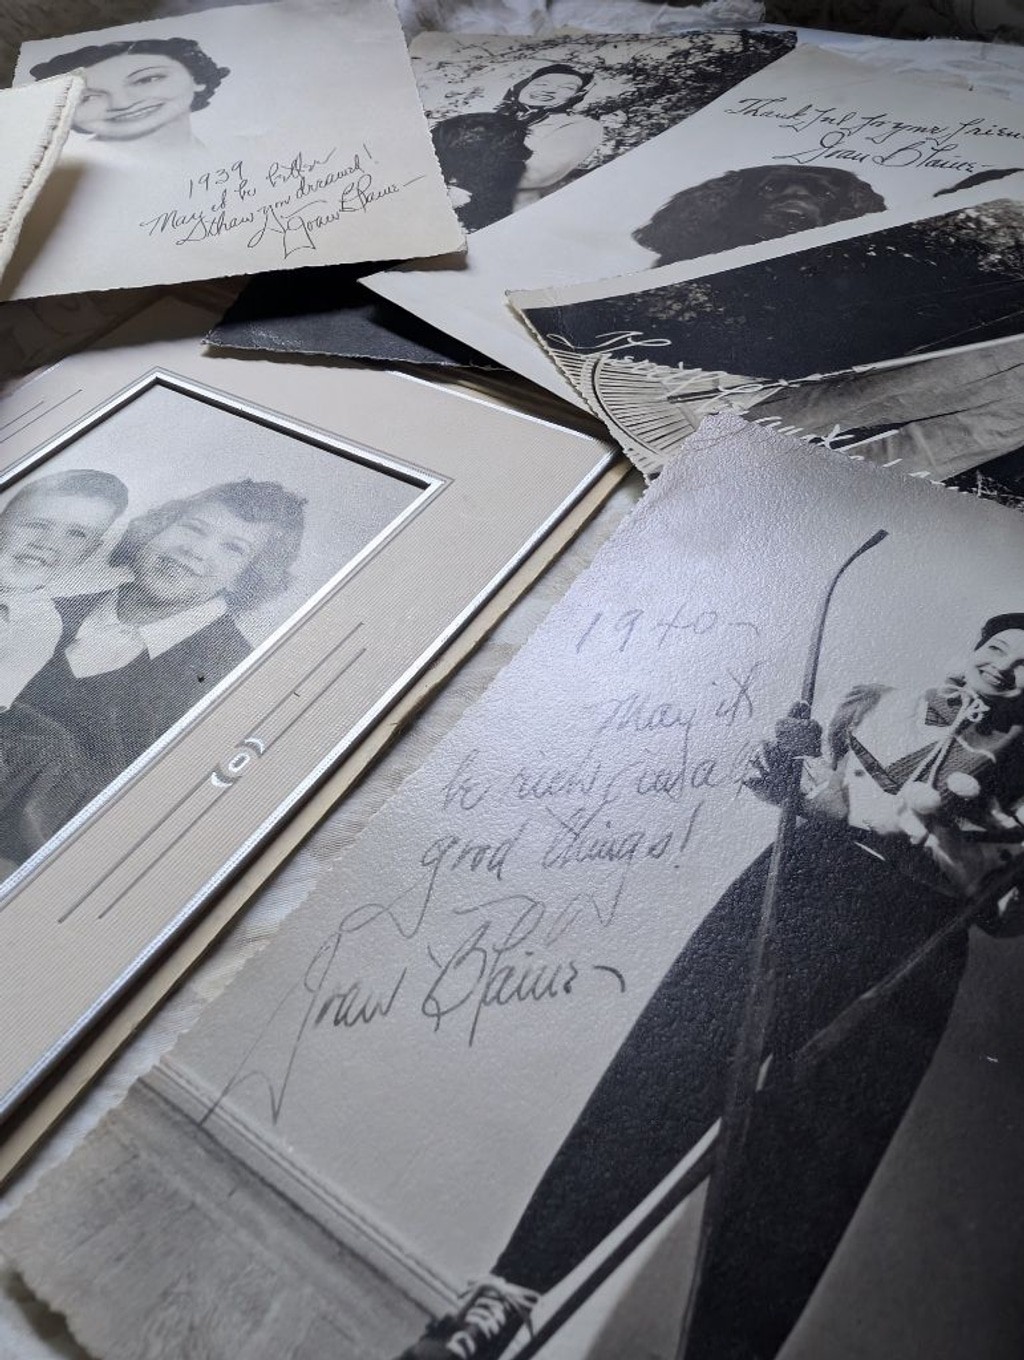 1939
May it be better
than you dreamed!
Joan Blaine
Thank Joel for your Frien
Joan Blaine
1940
May it
be rich in a
good things!
Joan Blaine